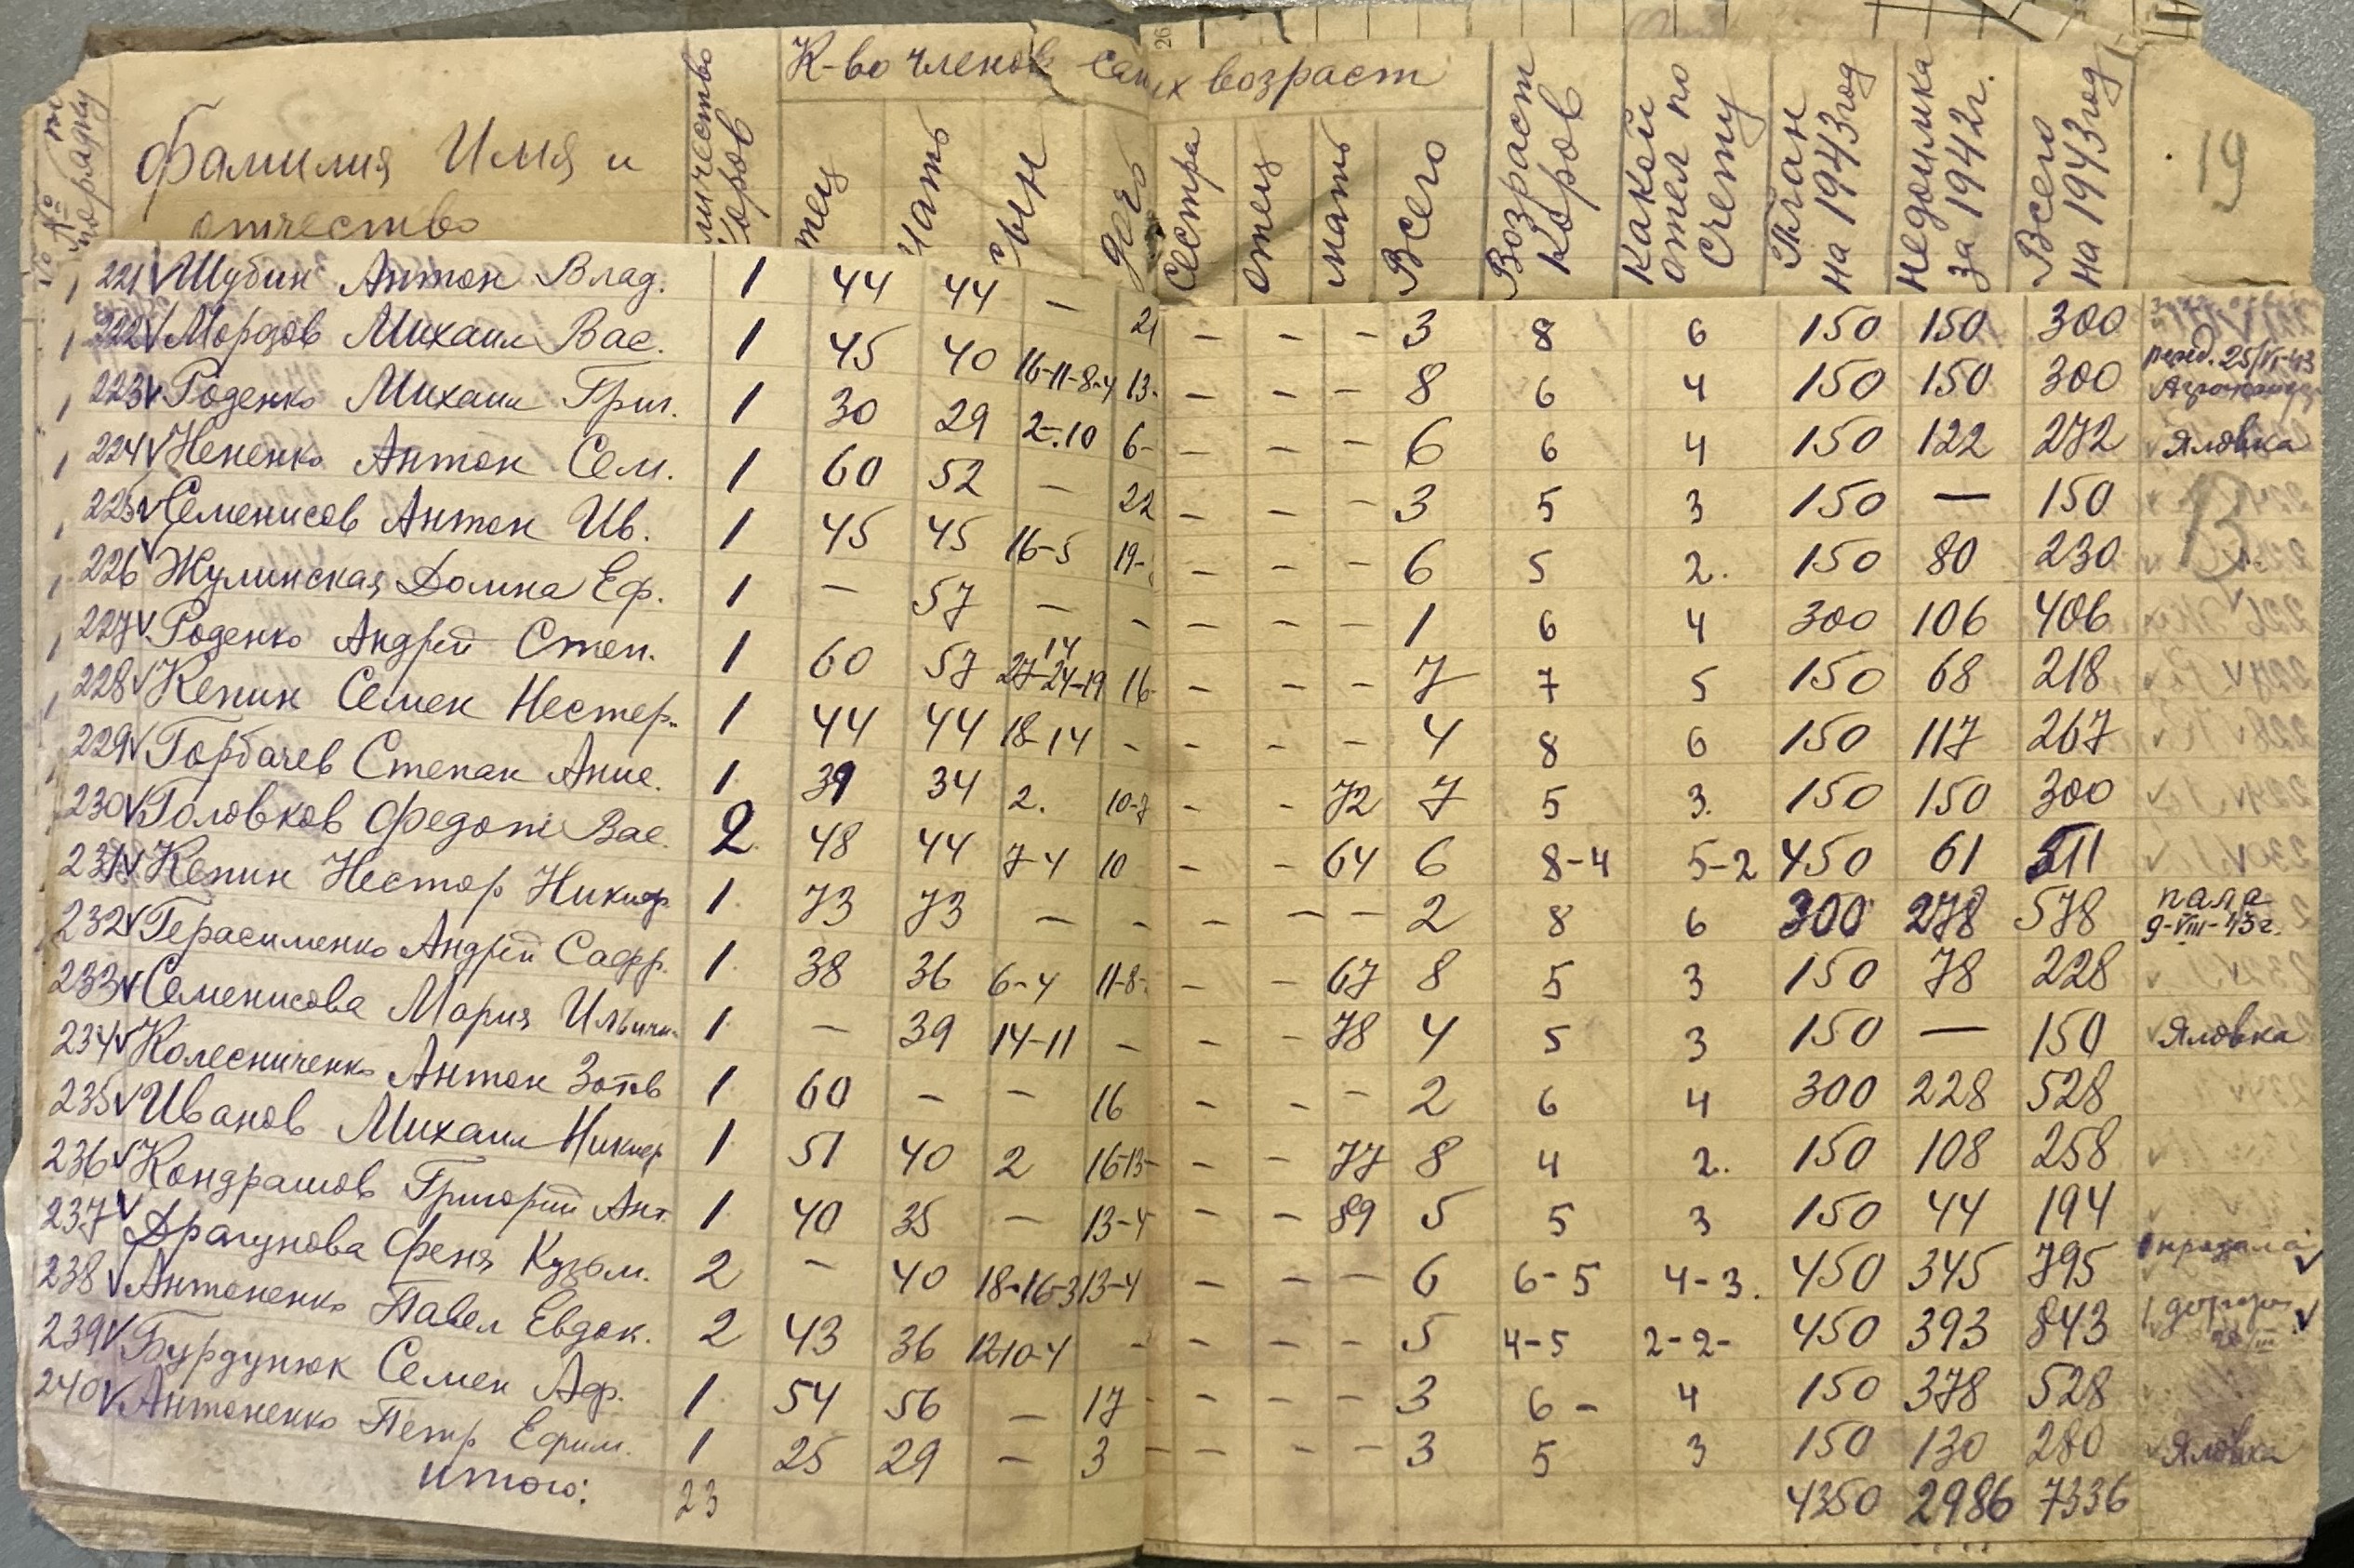 26
№№ по порядку
Фамилия Имя и отчество
К-во членов их возраст
коров
мать
сын
дочь
Сестра
отец
мать
Всего
Возраст Коров
Какой отел по счету
План на 1943 год
недоимка за 1942 г.
Всего на 1943 год
19
221 Шубин Антон Влад. 1 44 44 — 21 — — — 3 8 6 150 150 300
222 Мордов Михаил Вас. 1 45 40 16-11-8-4 13- — — — 8 6 4 150 150 300 25/VI-43
223 Роденко Михаил Григ. 1 30 29 2-.10 6- — — — 6 6 4 150 122 272 Яловка
224 Нененко Антон Сем. 1 60 52 — 22 — — — 3 5 3 150 — 150
225 Семенисов Антон Ив. 1 45 45 16-5 19- — — — 6 5 2. 150 80 230
226 Жулинская Домна Еф. 1 — 57 — — — — — 1 6 4 300 106 406
227 Роденко Андрей Степ. 1 60 57 27-24-19 14 16- — — — 7 7 5 150 68 218
228 Кепин Семен Нестер. 1 44 44 18-14 - — — — 4 8 6 150 117 267
229 Горбачев Степан Анис. 1 39 34 2. 10-7 — — 72 7 5 3. 150 150 300
230 Головков Федот Вас. 2 48 44 7-4 10 — — 64 6 8-4 5-2 450 61 511
231 Кепин Нестор Никиф. 1. 73 73 — — — — — 2 8 6 300 278 578 пала 9-VIII-43г.
232 Герасименко Андрей Софр. 1. 38 36 6-4 11-8- — — 67 8 5 3 150 78 228
233 Семенисова Мария Ильинич. 1. — 39 14-11 — — — 78 4 5 3 150 — 150 Яловка
234 Колесниченко Антон Зотов 1. 60 — — 16 — — — 2 6 4 300 228 528
235 Иванов Михаил Никиф 1. 51 40 2 16-13- — — 77 8 4 2. 150 108 258
236 Кондрашов Григорий Ант. 1. 40 35 — 13-4 — — 89 5 5 3 150 44 194
237 Драгунова Феня Кузьм. 2 — 40 18-16-3 13-4 — — — 6 6-5 4-3. 450 345 795
238 Антоненко Павел Евдок. 2 43 36 12-10-4 - — — — 5 4-5 2-2- 450 393 843
239 Бурдунюк Семен Аф. 1. 54 56 — 17 — — — 3 6- 4 150 378 528
240 Антоненко Петр Ефим. 1 25 29 — 3 — — — 3 5 3 150 130 280 Яловка
итого: 23 4350 2986 7336